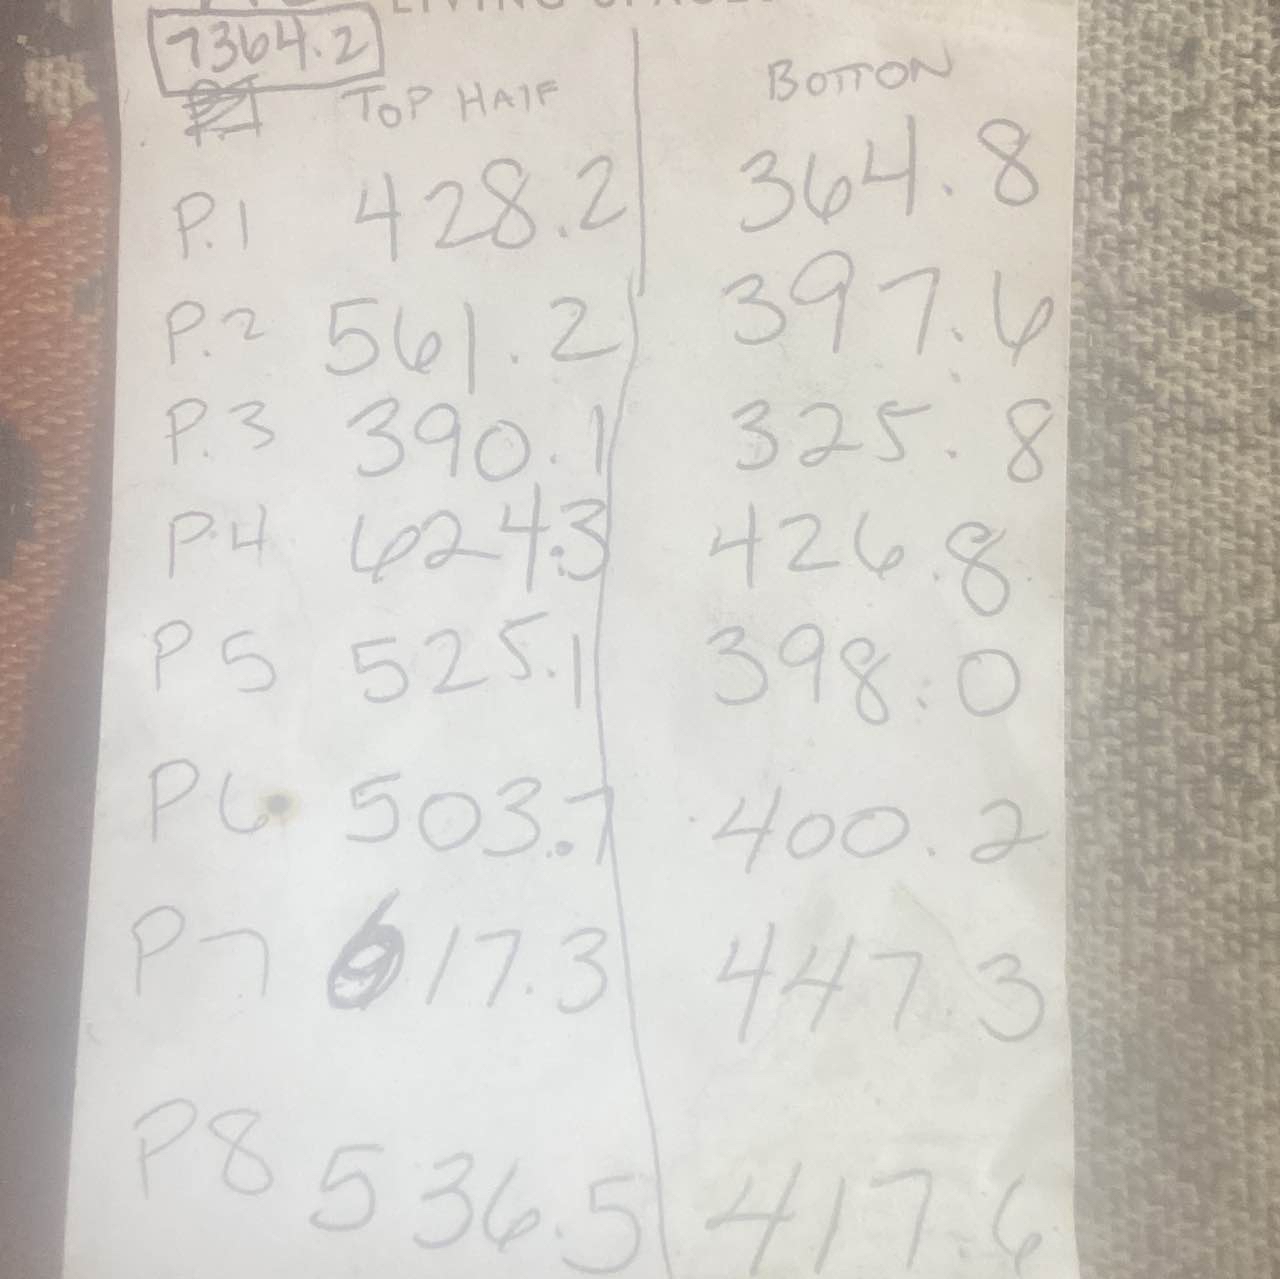 LIVING SPACES
7364.2
TOP HALF BOTTON
P.1 428.2 364.8
P.2 561.2 397.6
P.3 390.1 325.8
P.4 624.3 426.8
P5 525.1 398.0
P6 503.7 400.2
P7 617.3 447.3
P8 536.5 417.6